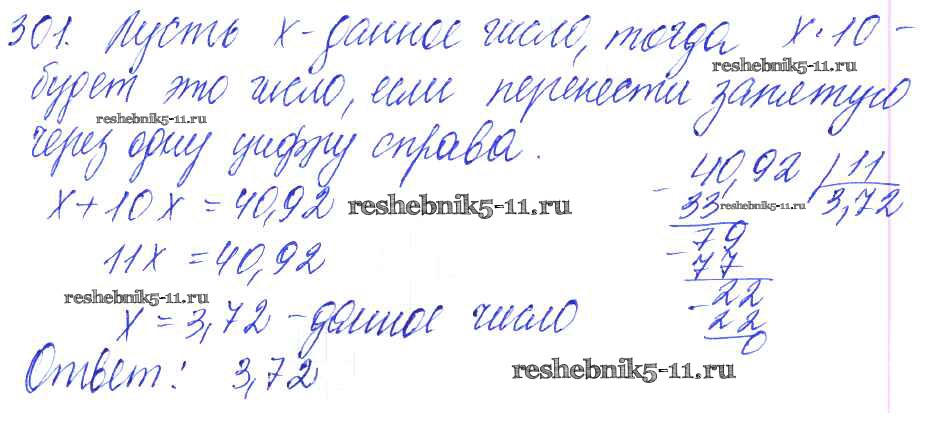 301. Пусть x - данное число, тогда x · 10 -
reshebnik5-11.ru
будет это число, если перенести запятую
reshebnik5-11.ru
через одну цифру справа.
x + 10x = 40,92
reshebnik5-11.ru
11x = 40,92
reshebnik5-11.ru
x = 3,72 - данное число
Ответ: 3,72
reshebnik5-11.ru
- 40,92 | 11
33 reshebnik5-11.ru 3,72
- 79
77
- 22
22
0